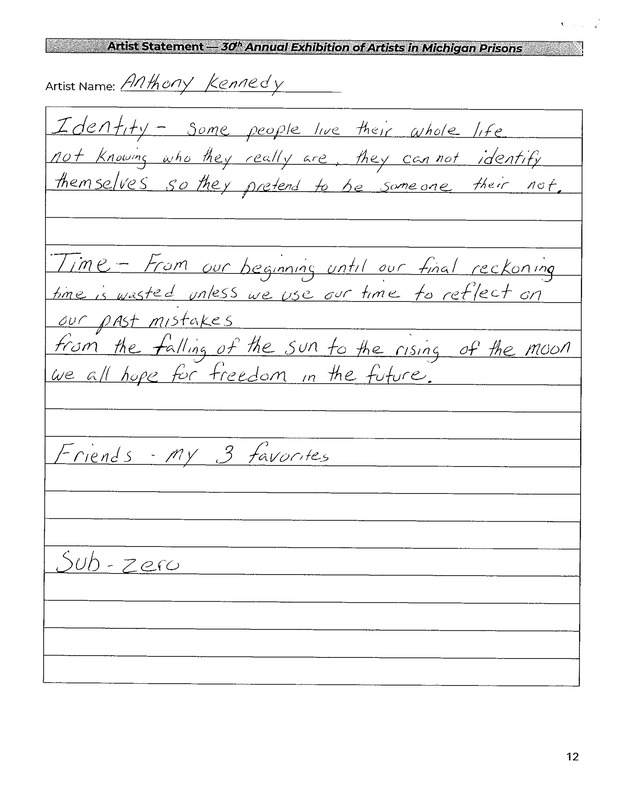 Artist Statement — 30th Annual Exhibition of Artists in Michigan Prisons
Artist Name: Anthony Kennedy
Identity - Some people live their whole life
not knowing who they really are, they can not identify
themselves so they pretend to be someone their not.
Time - From our beginning until our final reckoning
time is wasted unless we use our time to reflect on
our past mistakes
from the falling of the sun to the rising of the moon
we all hope for freedom in the future.
Friends - my 3 favorites
Sub-zero
12